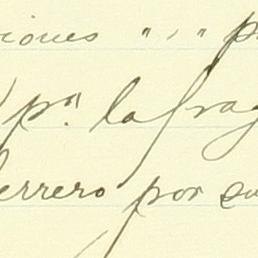 iones " , " p
pª. la frag
errero por su